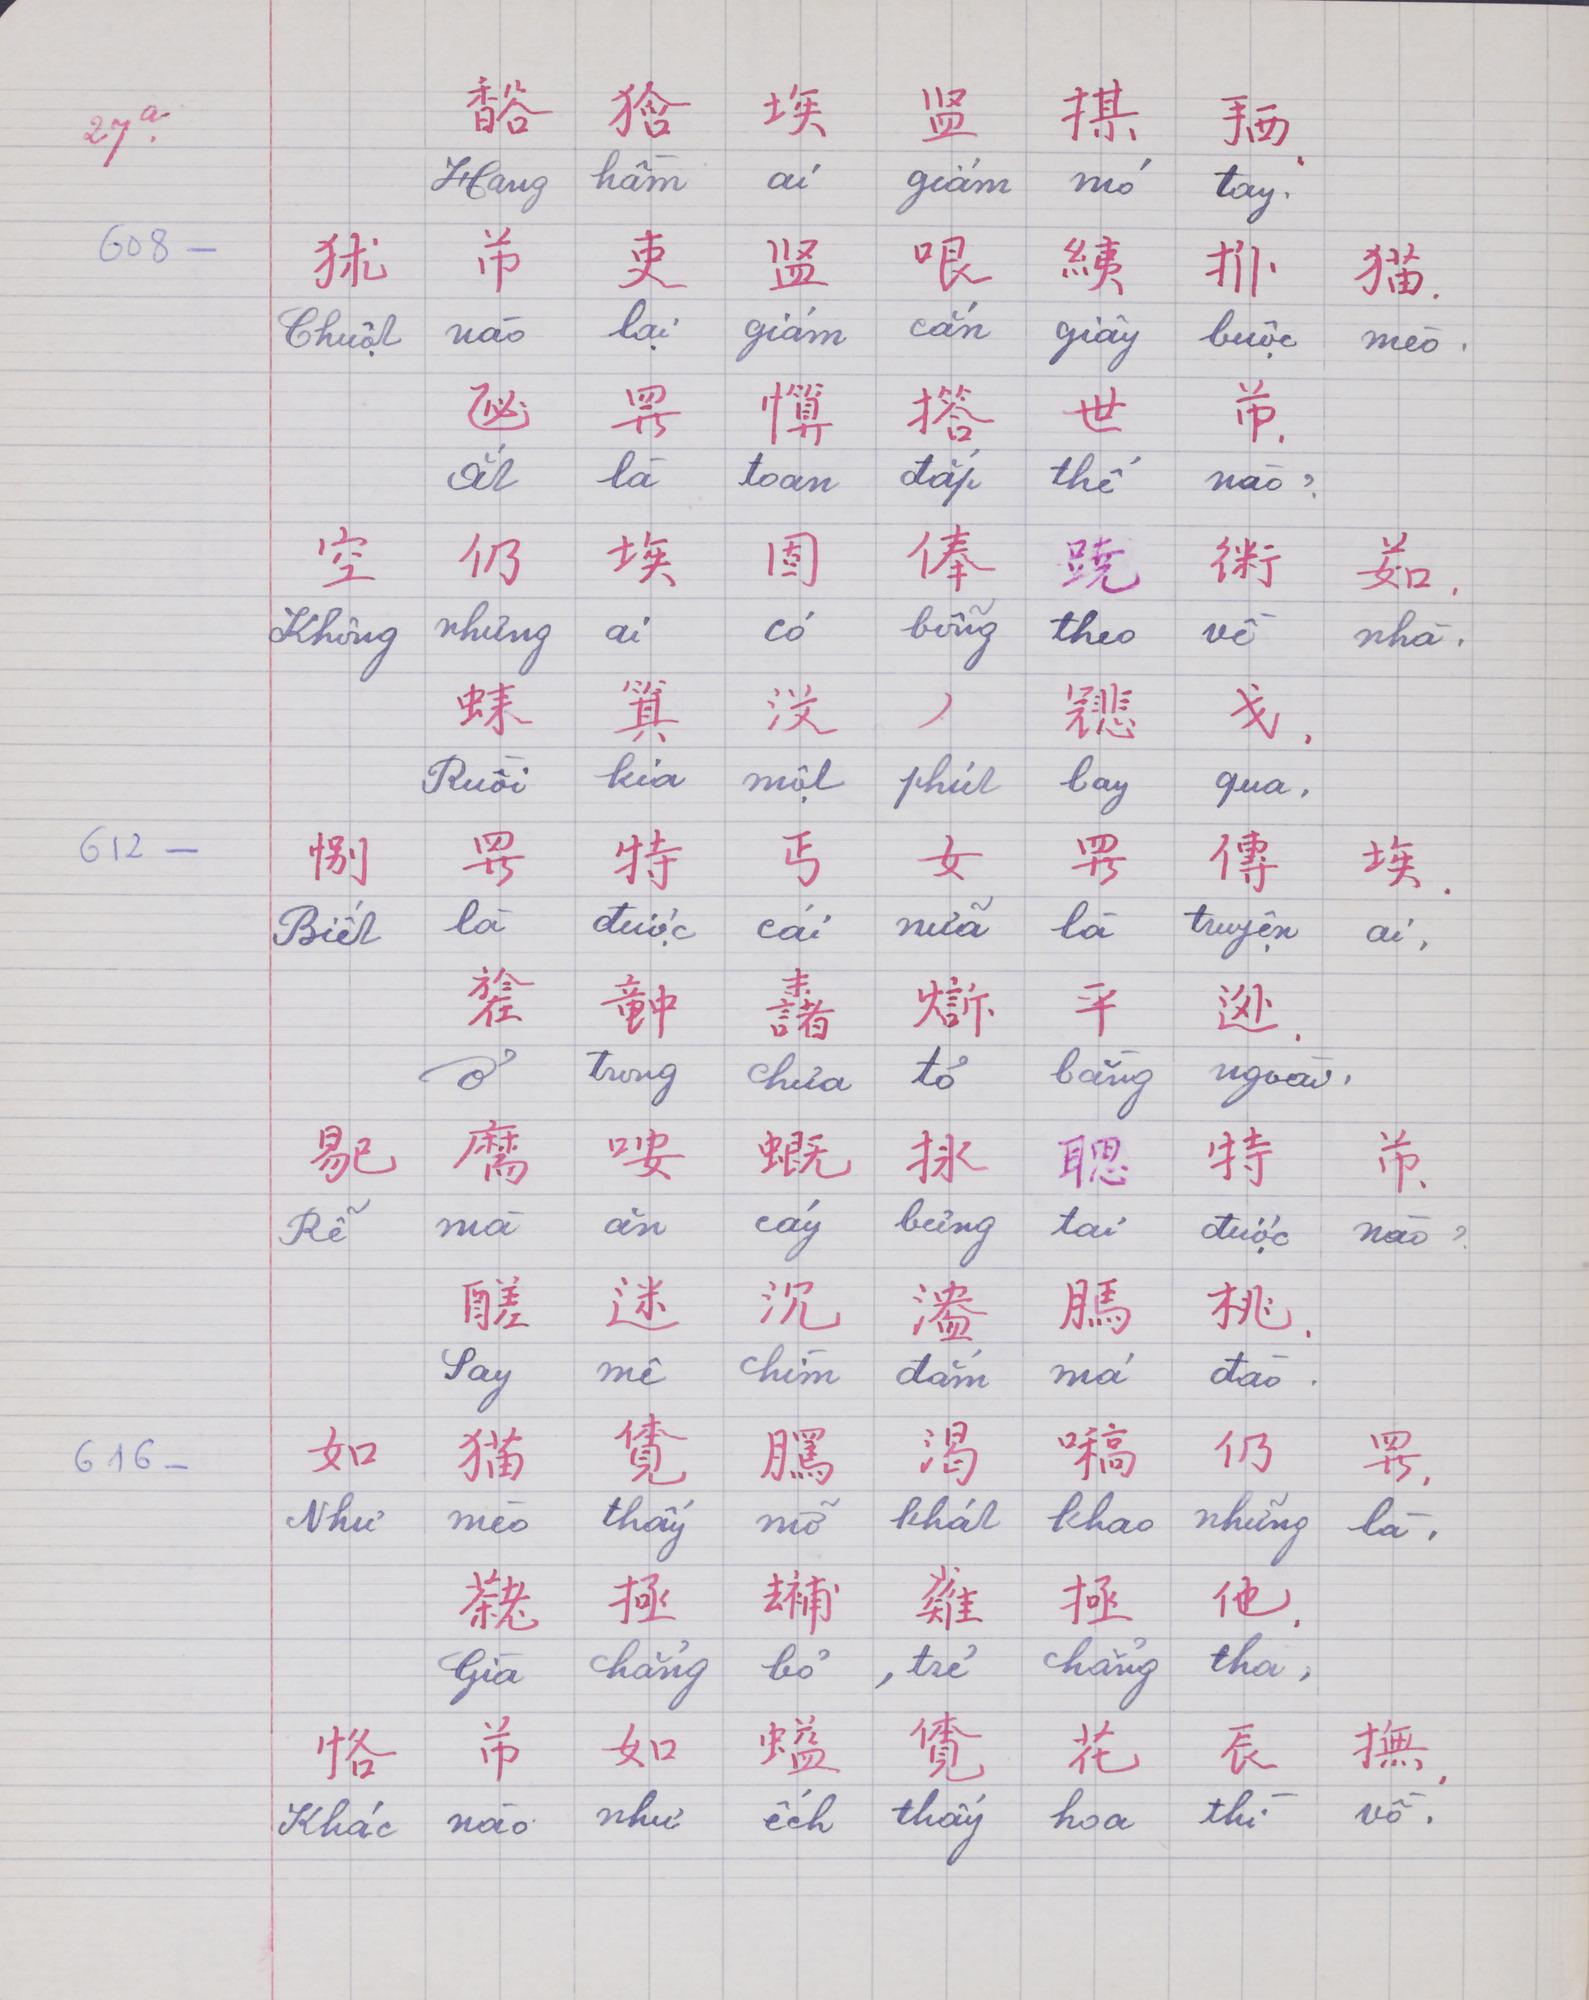 27a.
𪚚 㺸 埃 𥊀 𢱖 𢬣.
Hang hầm ai giám mó tay.
608 — 㹥 吊 吏 𥊀 哏 𦀊 扑 猫.
Chuột nào lại giám cắn giây buộc mèo.
𠃅 羅 㦖 撘 世 吊.
Ắt là toan đắp thế nào?
空 仍 埃 固 俸 蹺 術 茹.
Không những ai có bỗng theo về nhà.
蝳 箕 沒 丿 𩙻 戈.
Ruồi kia một phút bay qua,
612 — 別 羅 特 丐 女 羅 傳 埃.
Biết là được cái nữa là truyện ai,
於 𥪝 渚 訴 平 外.
Ở trong chửa tỏ bằng ngoài.
易 麻 咹 𧍆 捸 聰 特 吊.
Rễ mà ăn cáy bưng tai được nào?
醝 迷 沉 灆 𦟐 桃.
Say mê chìm đắm má đào.
616 — 如 猫 覺 𦟐 渴 嚆 仍 羅.
Như mèo thấy mỡ khát khao những là,
𦓅 極 補 𥘷 極 他.
Già chẳng bỏ, trẻ chẳng tha,
恪 吊 如 螠 覺 花 辰 撫.
Khác nào như ếch thấy hoa thì vồ.